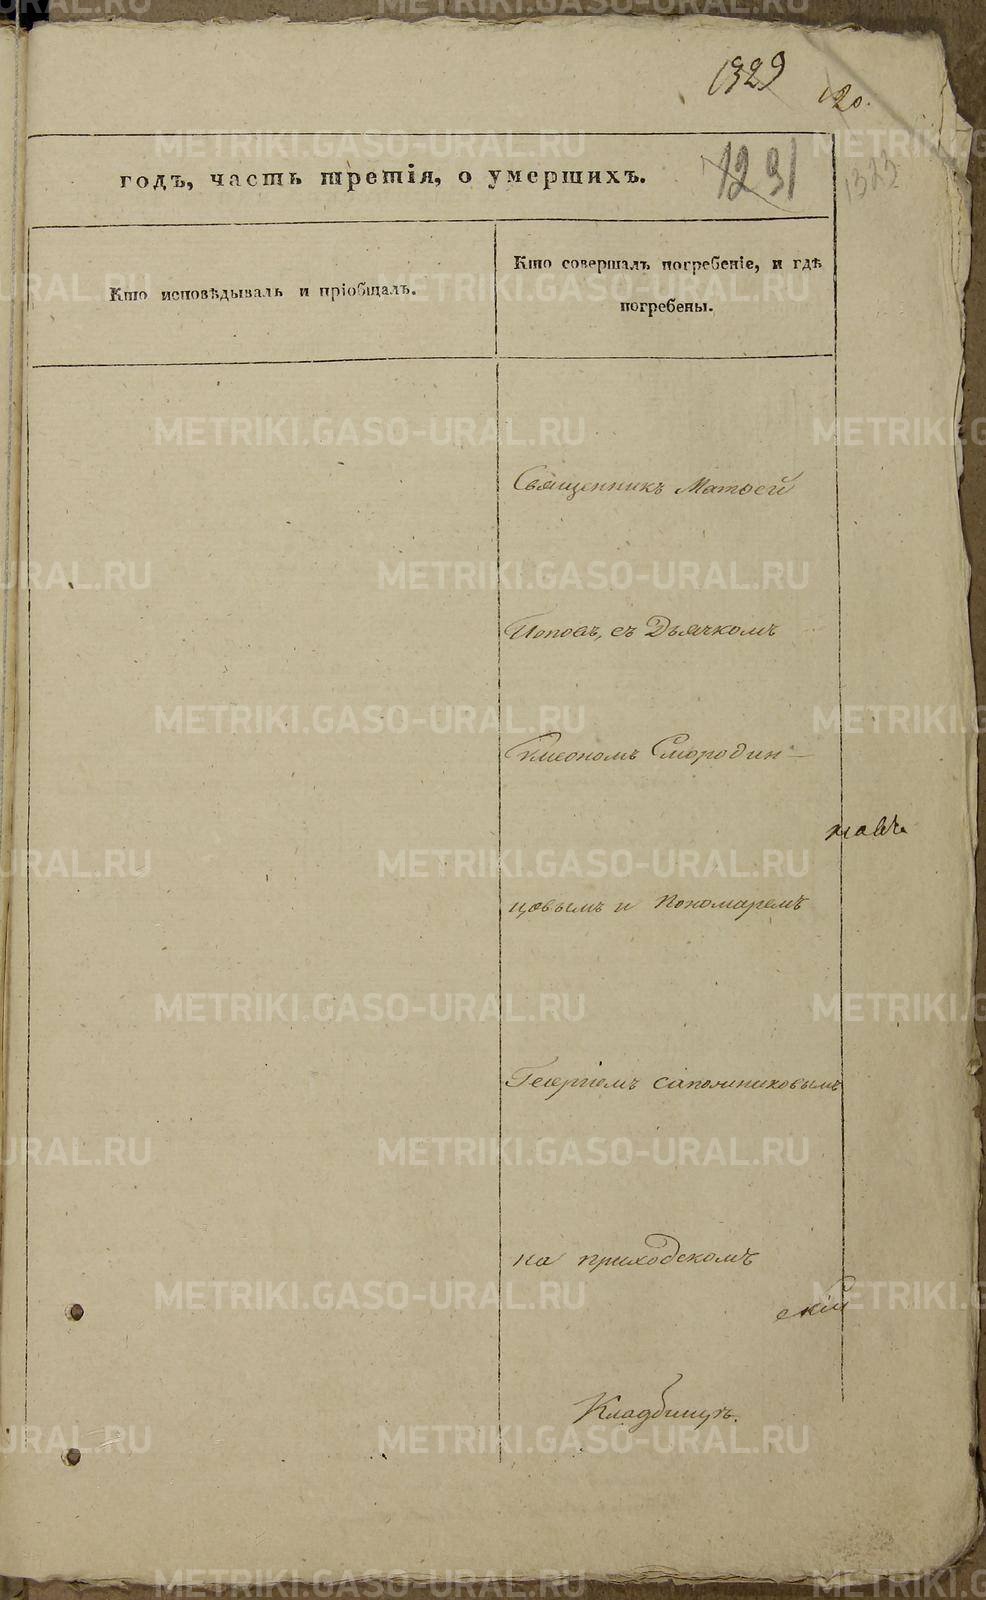 1329
120.
1231
1323
годъ, часть третія, о умершихъ.
Кто исповѣдывалъ и пріобщалъ.
Кто совершалъ погребеніе, и гдѣ
погребены.
Священникъ Матѳей
Поповъ, съ Дьячкомъ
Симеономъ Смородин-
навъ
цовымъ и Пономаремъ
Георгіемъ Сапожниковымъ
на приходскомъ
скій
Кладбищѣ.
METRIKI.GASO-URAL.RU